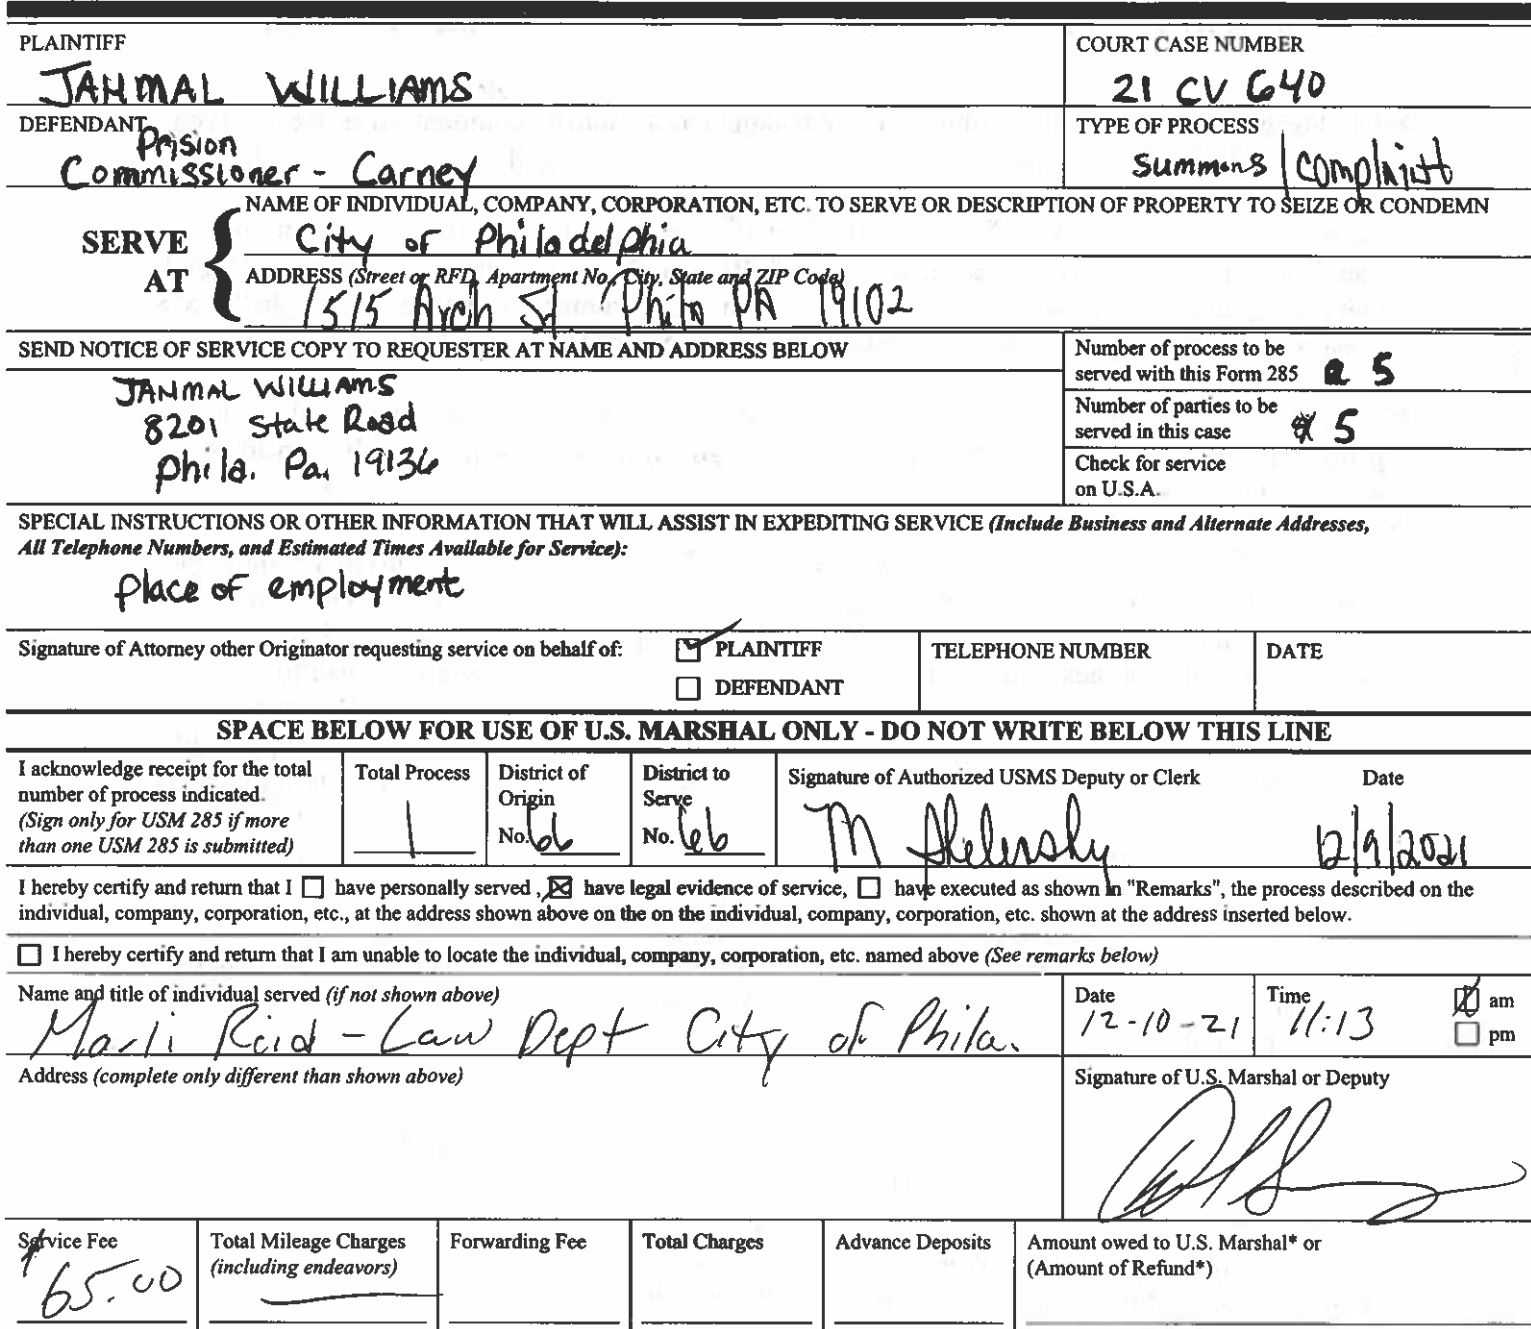 PLAINTIFF
JAHMAL WILLIAMS
COURT CASE NUMBER
21 CV 640
DEFENDANT
Prision
Commissioner - Carney
TYPE OF PROCESS
Summons / Complaint
SERVE
AT
NAME OF INDIVIDUAL, COMPANY, CORPORATION, ETC. TO SERVE OR DESCRIPTION OF PROPERTY TO SEIZE OR CONDEMN
City of Philadelphia
ADDRESS (Street or RFD, Apartment No., City, State and ZIP Code)
1515 Arch St Phila PA 19102
SEND NOTICE OF SERVICE COPY TO REQUESTER AT NAME AND ADDRESS BELOW
JAHMAL WILLIAMS
8201 State Road
Phila. Pa. 19136
Number of process to be
served with this Form 285 5
Number of parties to be
served in this case 5
Check for service
on U.S.A.
SPECIAL INSTRUCTIONS OR OTHER INFORMATION THAT WILL ASSIST IN EXPEDITING SERVICE (Include Business and Alternate Addresses,
All Telephone Numbers, and Estimated Times Available for Service):
Place of employment
Signature of Attorney other Originator requesting service on behalf of:
PLAINTIFF
DEFENDANT
TELEPHONE NUMBER
DATE
SPACE BELOW FOR USE OF U.S. MARSHAL ONLY - DO NOT WRITE BELOW THIS LINE
I acknowledge receipt for the total
number of process indicated.
(Sign only for USM 285 if more
than one USM 285 is submitted)
Total Process
1
District of
Origin
No. 66
District to
Serve
No. 66
Signature of Authorized USMS Deputy or Clerk
M
Date
12/9/2021
I hereby certify and return that I have personally served , have legal evidence of service, have executed as shown in "Remarks", the process described on the
individual, company, corporation, etc., at the address shown above on the on the individual, company, corporation, etc. shown at the address inserted below.
I hereby certify and return that I am unable to locate the individual, company, corporation, etc. named above (See remarks below)
Name and title of individual served (if not shown above)
Marli Reid - Law Dept City of Phila.
Date
12-10-21
Time
11:13
am
pm
Address (complete only different than shown above)
Signature of U.S. Marshal or Deputy
Service Fee
65.00
Total Mileage Charges
(including endeavors)
Forwarding Fee
Total Charges
Advance Deposits
Amount owed to U.S. Marshal* or
(Amount of Refund*)